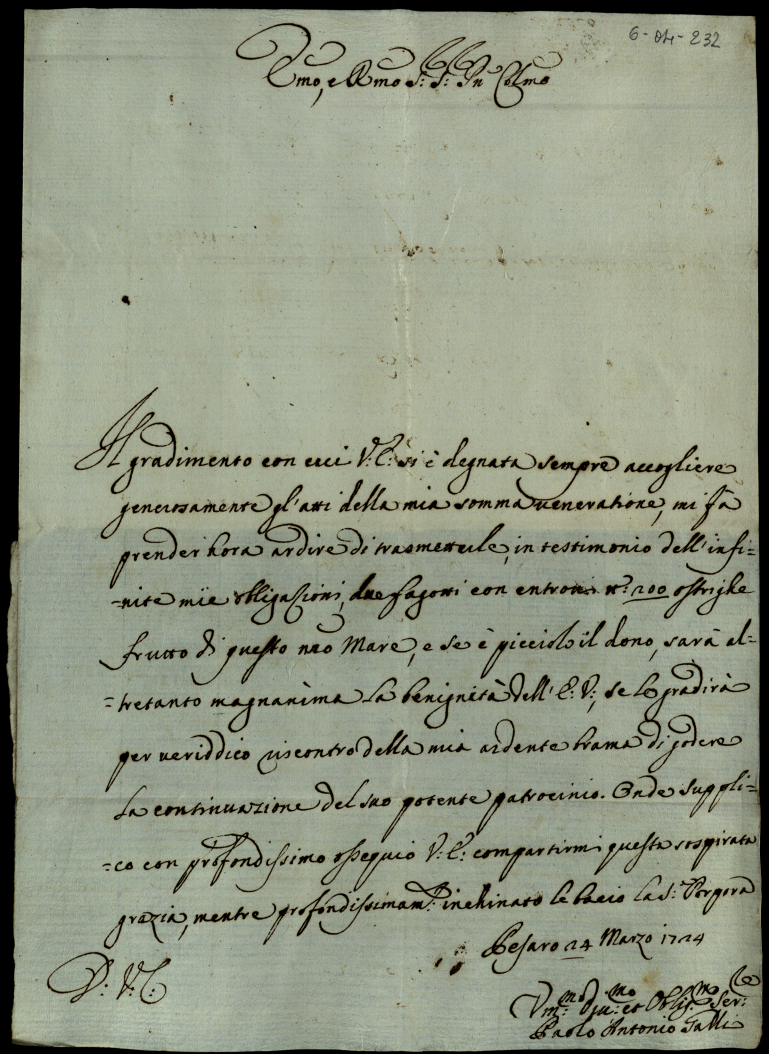 6-04-232
Emo, e Rmo S: S: Pn Colmo
Il gradimento con cui V: E: si è degnata sempre accogliere
generosamente gl'atti della mia somma veneratione, mi fa
prender hora ardire di trasmetterle, in testimonio dell'infi=
=nite mie obligazioni, due fagotti con entrovi n:º 200 ostriche
frutto di questo nro Mare, e se è picciolo il dono, sarà al=
=tretanto magnanima la benignità dell'E: V:, se lo gradirà
per veriddico riscontro della mia ardente brama di godere
la continuazione del suo potente patrocinio. Onde suppli=
=co con profondissimo ossequio V: E: compartirmi questa sospirata
grazia, mentre profondissimam:te inchinato le bacio la S: Porpora
Pesaro 24 Marzo 1724
D: V: E:
Vm:mo Du:mo et Oblig:mo Ser:re
Paolo Antonio Galli